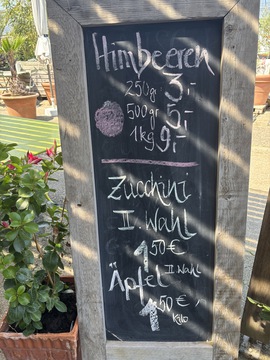 Himbeeren
250gr 3,-
500gr 5,-
1kg 9,-
Zucchini
II. Wahl
1 50€
Äpfel II Wahl
1 50€,
Kilo